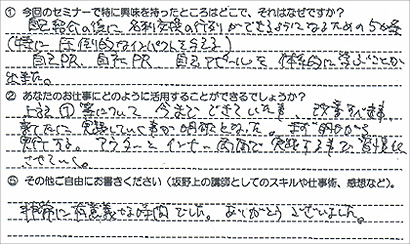 ① 今回のセミナーで特に興味を持ったところはどこで、それはなぜですか？
配紹介の後に名刺交換の行列ができるようになるための5カ条
(特に 圧倒的なインパクトを与える)
自己PR、自社PR 自己アピールを体系的に学ぶことが
出来た。
② あなたのお仕事にどのように活用することができるでしょうか？
上記①等について 今までできていた事、改善すべき事
新たに実践していく事が明確となった。まず明日から
実行する。アウターとインナー両面で実践する事で習慣化
させていく。
⑤ その他ご自由にお書きください（坂野上の講師としてのスキルや仕事術、感想など）。
非常に有意義な時間でした。ありがとうございました。